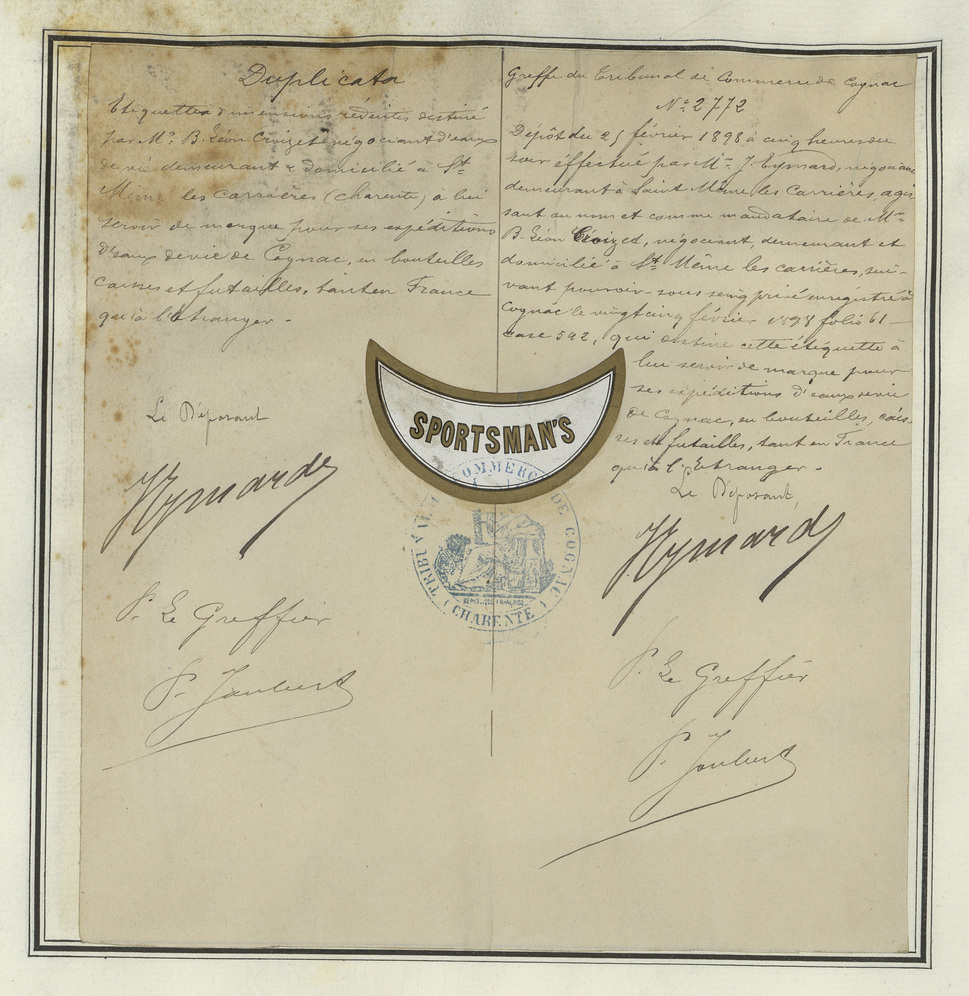 Duplicata
Etiquette dimensions réduites destiné
par Mr. B. Léon Croizet négociant d'eaux
de vie demeurant & domicilié à St.
Même les Carrières (Charente) à lui
servir de marque pour ses expéditions
d'eaux de vie de Cognac, en bouteilles
caisses et futailles, tant en France
qu'à l'étranger.
Le Déposant
JEymard
P. Le Greffier
P. Joubert
Greffe du Tribunal de Commerce de Cognac
No. 2772
Dépôt du 25 février 1898 à cinq heures du
soir effectué par Mr. J. Eymard, négociant
demeurant à Saint Même les Carrières, agis-
sant au nom et comme mandataire de Mr.
B. Léon Croizet, négociant, demeurant et
domicilié à St. Même les carrières, sui-
vant pouvoir sous seing privé enregistré à
Cognac le vingt cinq février 1898 folio 61
case 542, qui destine cette étiquette à
lui servir de marque pour
ses expéditions d'eaux de vie
de Cognac, en bouteilles, cais-
ses et futailles, tant en France
qu'à l'Etranger.
Le Déposant,
JEymard
P. Le Greffier
P. Joubert
SPORTSMAN'S
COMMERCE DE COGNAC
(CHARENTE)